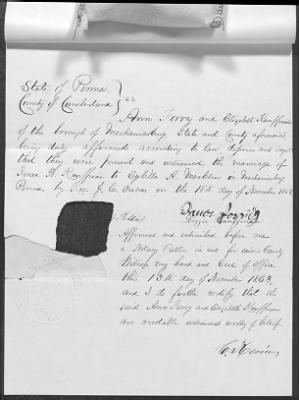 State of Penna
County of Cumberland } ss
Ann Forry and Elizabeth Kauffman
of the borough of Mechanicsburg State and County aforesaid
being duly affirmed according to law, depose and says
that they were present and witnessed the marriage of
Isaac B. Kauffman to Cybilla A. Workins in Mechanicsburg
Penna by Rev. J. C. Owens on the 18th day of November
Affirmed and subscribed before me
a Notary Public in and for said County
Witness my hand and seal of office
this 13th day of November 1863,
and I do further certify that the
said Ann Forry and Elizabeth Kauffman
are credible witnesses worthy of belief.